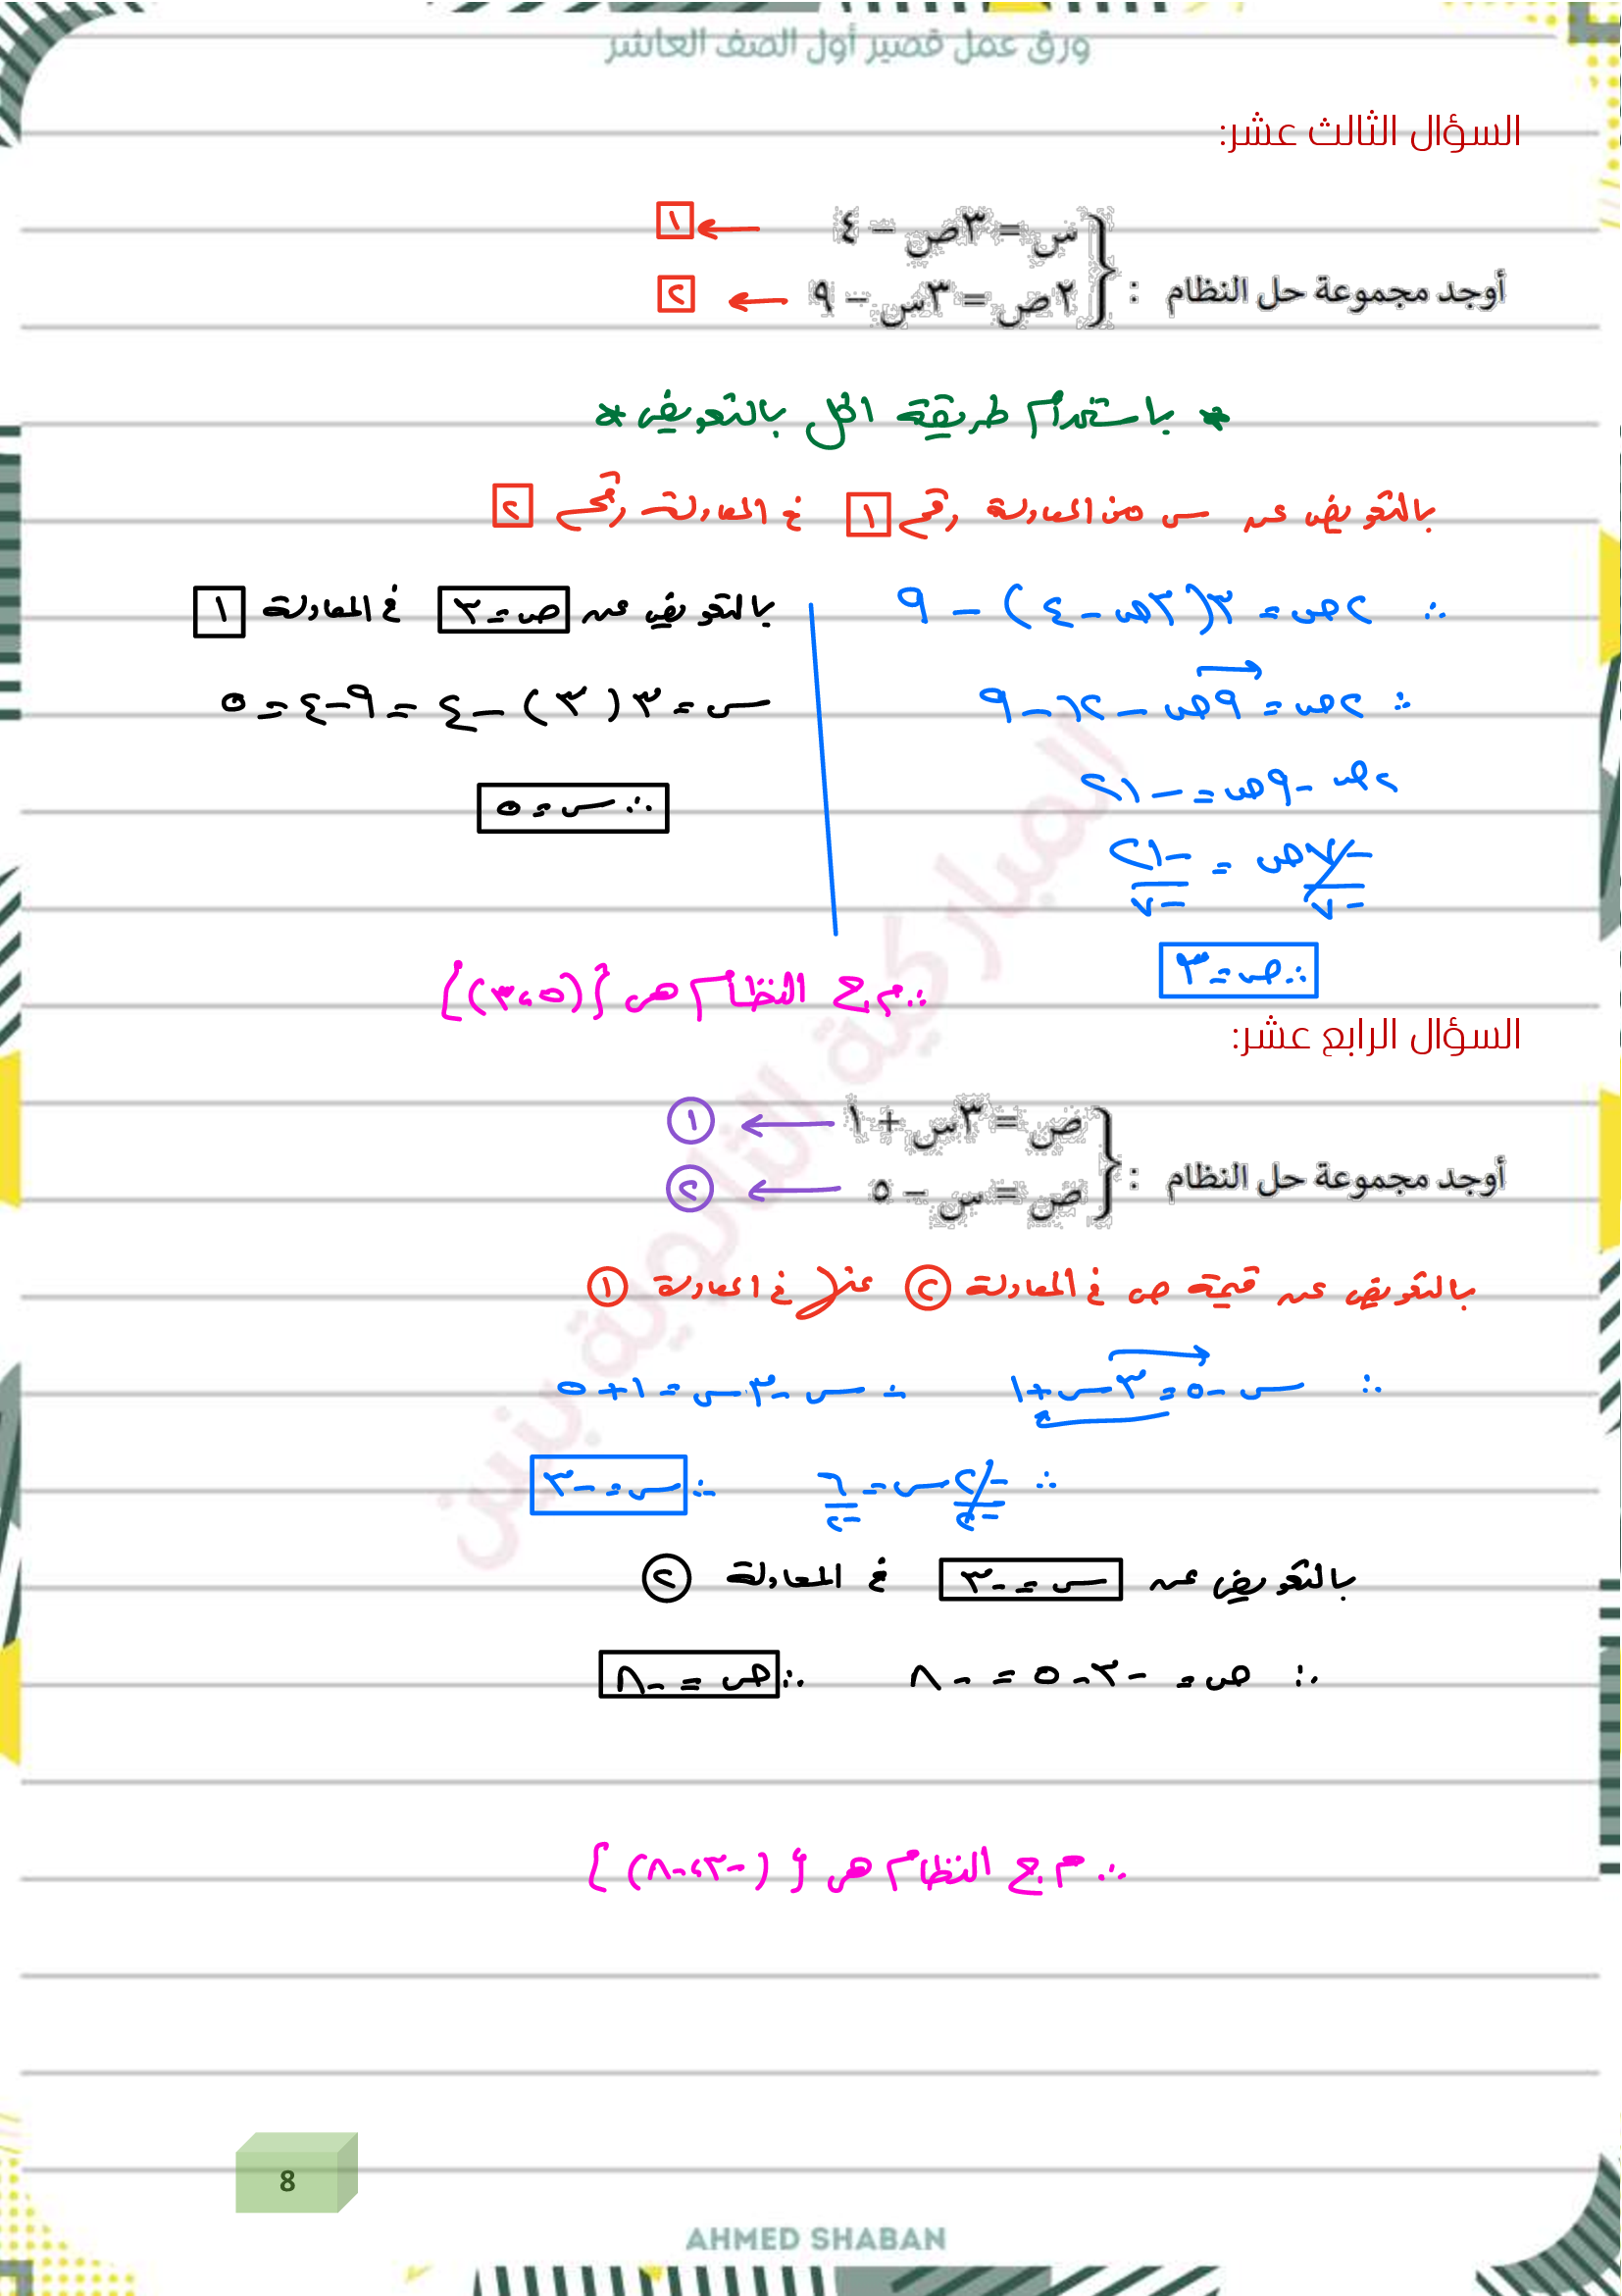 ورق عمل قصير أول الصف العاشر
السؤال الثالث عشر:
س = ٣ص - ٤ ← ١
أوجد مجموعة حل النظام :
٢ص = ٣س - ٩ ← ٢
* باستخدام طريقة الحل بالتعويض *
بالتعويض عن س من المعادلة رقم ١ في المعادلة رقم ٢
∴ ٢ص = ٣(٣ص - ٤) - ٩
∴ ٢ص = ٩ص - ١٢ - ٩
٢ص - ٩ص = - ٢١
-٧ص/-٧ = -٢١/-٧
∴ ص = ٣
بالتعويض عن ص = ٣ في المعادلة ١
س = ٣(٣) - ٤ = ٩ - ٤ = ٥
∴ س = ٥
∴ م.ح النظام هي {(٥،٣)}
السؤال الرابع عشر:
ص = ٣س + ١ ← ١
أوجد مجموعة حل النظام :
ص = س - ٥ ← ٢
بالتعويض عن قيمة ص في المعادلة ٢ في المعادلة ١
∴ س - ٥ = ٣س + ١ ∴ س - ٣س = ١ + ٥
∴ -٢س/-٢ = ٦/-٢ ∴ س = -٣
بالتعويض عن س = -٣ في المعادلة ٢
∴ ص = -٣ - ٥ = -٨ ∴ ص = -٨
∴ م.ح النظام هي {(-٣،-٨)}
المباركية الثانوية بنين
8
AHMED SHABAN